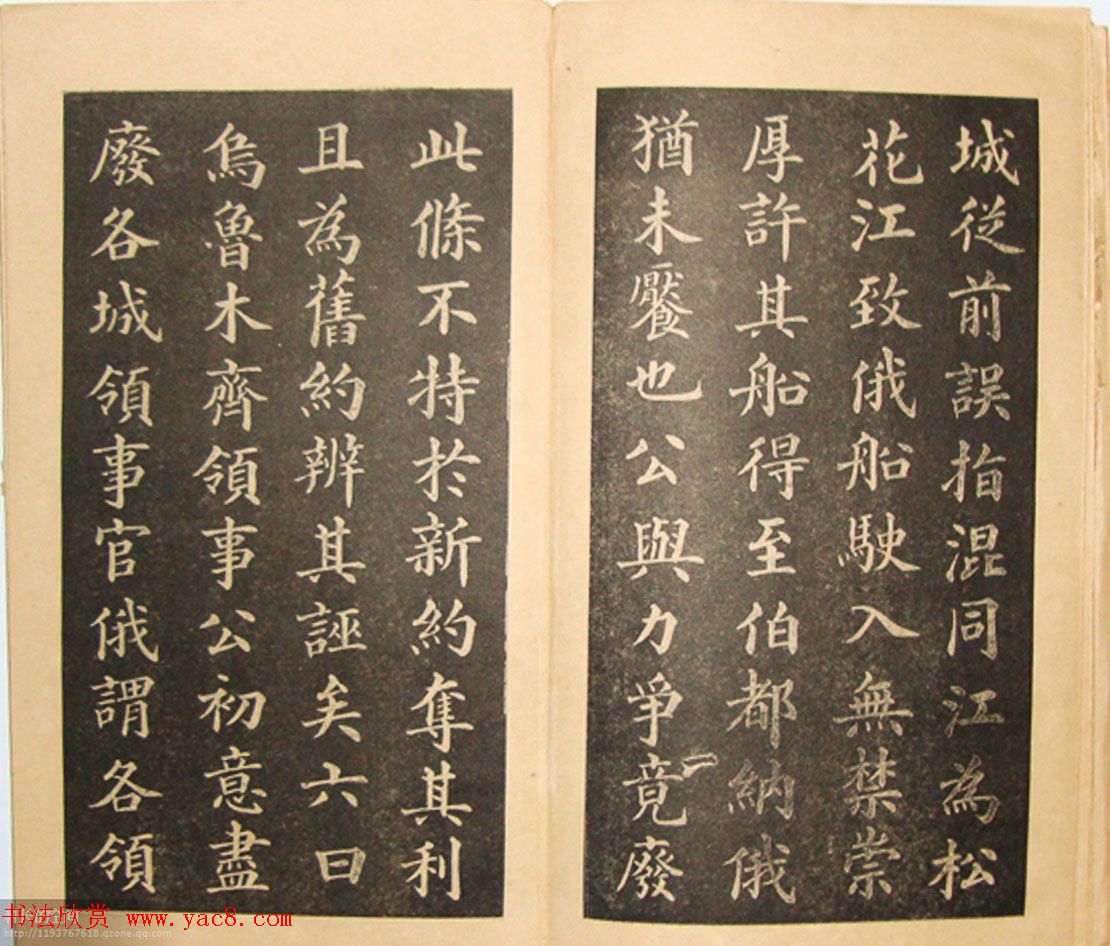 城從前誤指混同江為松
花江致俄船駛入無禁崇
厚許其船得至伯都納俄
猶未饜也公與力爭竟廢
此條不特於新約奪其利
且為舊約辨其誣矣六曰
烏魯木齊領事公初意盡
廢各城領事官俄謂各領
书法欣赏 www.yac8.com
http://1193767618.qzone.qq.com